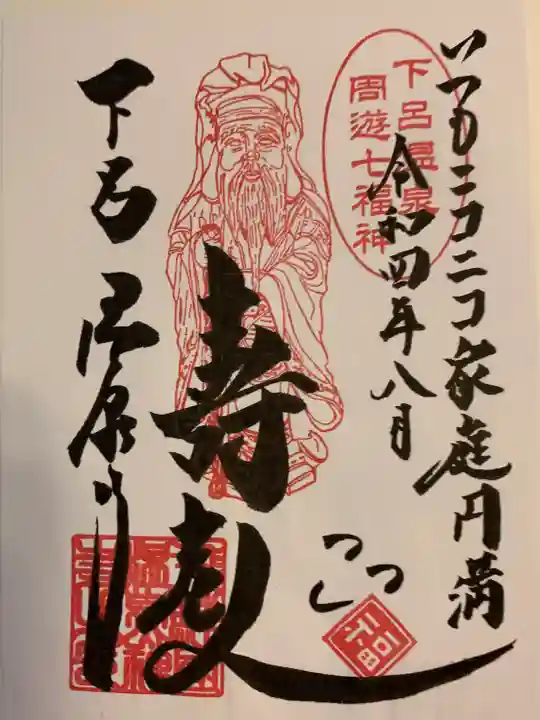 いつもニコニコ家庭円満
下呂温泉
周遊七福神
令和四年八月
寿老人
下呂
福